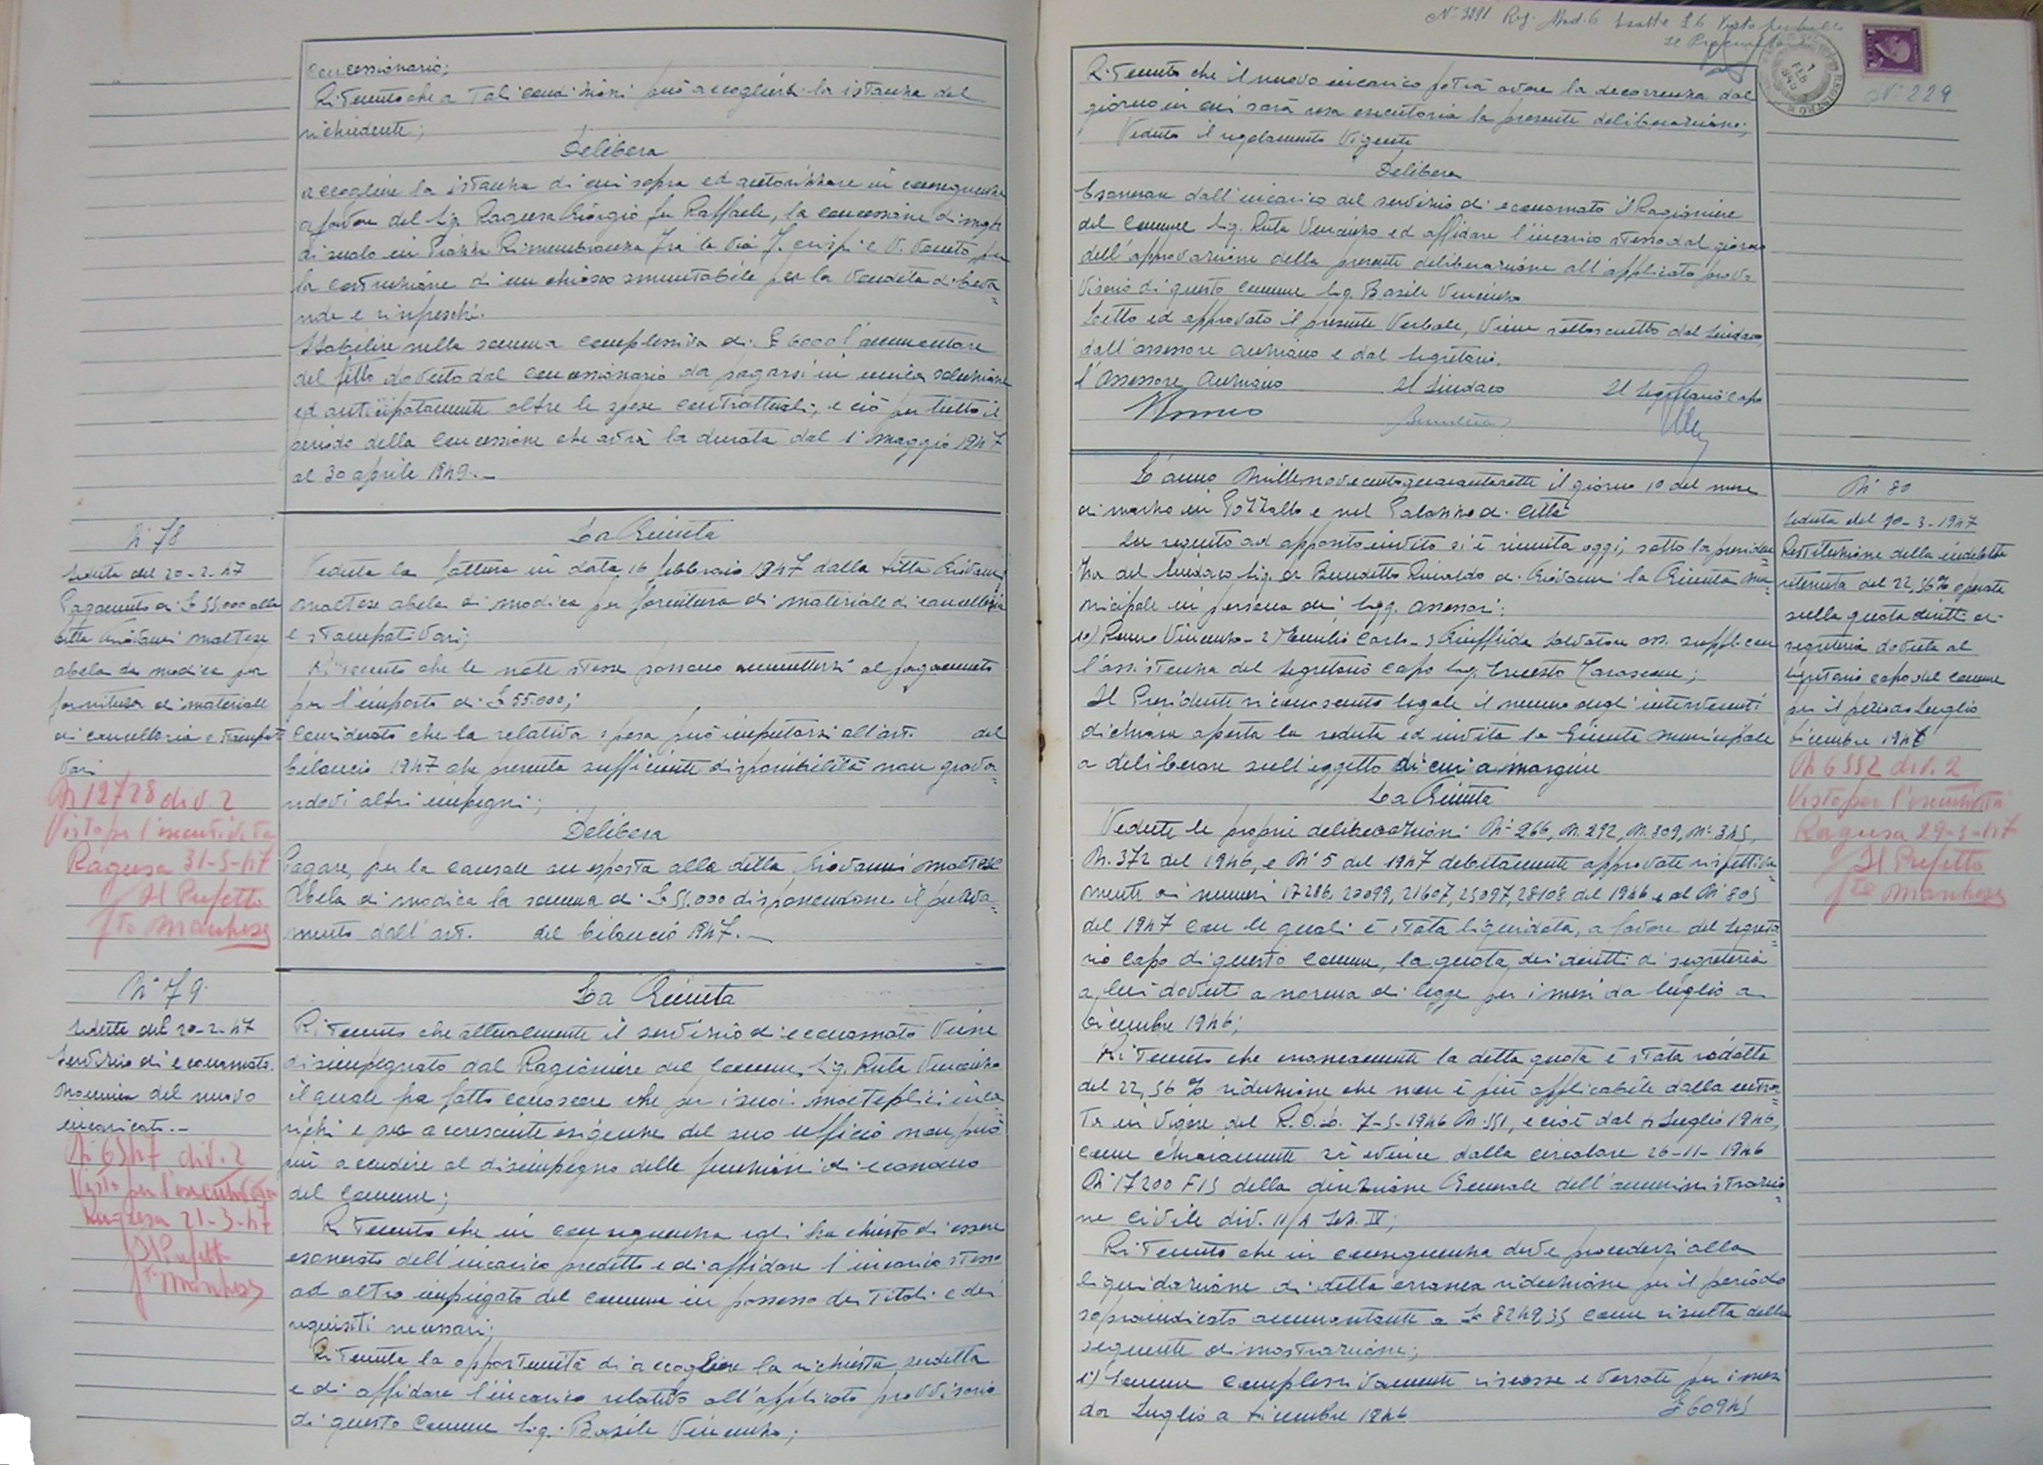 concessionario;
Ritenuto che a tali condizioni può accogliersi la istanza del
richiedente;
Delibera
accogliere la istanza di cui sopra ed autorizzare in conseguenza
a favore del Sig. Ragusa Giorgio fu Raffaele, la concessione di mq
di suolo in Piazza Rimembranza fra la Via F. Crispi e V. Veneto per
la costruzione di un chiosco smontabile per la vendita di bevan=
nde e rinfreschi.
Stabilire nella somma complessiva di £ 6000 l'ammontare
del fitto dovuto dal concessionario da pagarsi in unica soluzione
ed anticipatamente oltre le spese contrattuali, e ciò per tutto il
periodo della concessione che avrà la durata dal 1° maggio 1947
al 30 aprile 1949.-
N° 78
Seduta del 20-2-47
Pagamento di £ 55.000 alla
Ditta Giovanni Maltese
Abela da Modica per
fornitura di materiale
di cancelleria e stampati
vari
N 12728 div. 2
Visto per l'esecutività
Ragusa 31-5-47
Il Prefetto
fto
La Giunta
Veduta la fattura in data 16 febbraio 1947 dalla Ditta Giovanni
Maltese Abela di Modica per fornitura di materiale di cancelleria
e stampati vari;
Ritenuto che le note stesse possono ammettersi al pagamento
per l'importo di £ 55.000;
Considerato che la relativa spesa può imputarsi all'art. del
bilancio 1947 che presenta sufficiente disponibilità non gravan=
ndovi altri impegni;
Delibera
Pagare, per la causale su esposta alla ditta Giovanni Maltese
Abela di Modica la somma di £ 55.000 disponendone il preleva=
mento dall'art. del bilancio 1947.-
N° 79
Seduta del 20-2-47
Servizio di economato.
Nomina del nuovo
incaricato.-
N 6547 div. 2
Visto per l'esecutività
Ragusa 21-3-47
Il Prefetto
fto
La Giunta
Ritenuto che attualmente il servizio di economato viene
disimpegnato dal Ragioniere del Comune Sig. Ruta Vincenzo
il quale ha fatto conoscere che per i suoi molteplici inca=
richi e per accresciute esigenze del suo ufficio non può
più accudire al disimpegno delle funzioni di economo
del Comune;
Ritenuto che in conseguenza egli ha chiesto di essere
esonerato dell'incarico predetto e di affidare l'incarico stesso
ad altro impiegato del Comune in possesso dei titoli e dei
requisiti necessari;
Ritenuta la opportunità di accogliere la richiesta suddetta
e di affidare l'incarico relativo all'applicato provvisorio
di questo Comune Sig. Basile Vincenzo;
N° 3291 Reg. Mod. 6 Esatte £ 6
Il Procuratore
N° 229
Ritenuto che il nuovo incarico potrà avere la decorrenza dal
giorno in cui sarà resa esecutoria la presente deliberazione;
Veduto il regolamento vigente
Delibera
Esonerare dall'incarico del servizio di economato il Ragioniere
del Comune Sig. Ruta Vincenzo ed affidare l'incarico stesso dal giorno
dell'approvazione della presente deliberazione all'applicato prov=
visorio di questo Comune Sig. Basile Vincenzo
Letto ed approvato il presente verbale, viene sottoscritto dal Sindaco,
dall'assessore anziano e dal Segretario.
l'Assessore Anziano Il Sindaco Il Segretario Capo
L'anno millenovecentoquarantasette il giorno 10 del mese
di marzo in Pozzallo e nel Palazzo di Città
In seguito ad apposito invito si è riunita oggi, sotto la presiden=
za del Sindaco Sig. Dr Benedetto Rinaldo di Giovanni la Giunta mu=
nicipale in persona dei Sigg. assessori:
1°) Vincenzo - 2 Carlo - 3 Giuffrida Salvatore ass. suppl. con
l'assistenza del Segretario Capo Sig. Ernesto;
Il Presidente riconosciuto legale il numero degli intervenuti
dichiara aperta la seduta ed invita la Giunta Municipale
a deliberare sull'oggetto di cui a margine
N° 80
Seduta del 10-3-1947
Restituzione della indebita
ritenuta del 22,56% operata
sulla quota diritti di
segreteria dovuta al
Segretario capo del Comune
per il periodo Luglio
Dicembre 1946
N 6552 div. 2
Visto per l'esecutività
Ragusa 29-3-47
Il Prefetto
fto
La Giunta
Vedute le proprie deliberazioni N° 266, N. 292, N. 309, N° 345,
N. 372 del 1946, e N° 5 del 1947 debitamente approvate rispettiva=
mente ai numeri 17286, 20099, 21607, 25097, 28108 del 1946 e al N° 805
del 1947 con le quali è stata liquidata, a favore del Segreta=
rio Capo di questo Comune, la quota dei diritti di segreteria
a lui dovuti a norma di legge per i mesi da luglio a
Dicembre 1946;
Ritenuto che erroneamente la detta quota è stata ridotta
del 22,56% riduzione che non è più applicabile dalla entra=
ta in vigore del R.D.L. 7-5-1946 N. 551, e cioè dal 1 Luglio 1946,
come chiaramente si evince dalla circolare 26-11-1946
N° 17200 F15 della direzione Generale dell'amministrazio=
ne civile div. II/A Sez. IV;
Ritenuto che in conseguenza deve procedersi alla
liquidazione di detta erronea riduzione per il periodo
sopraindicato ammontante a £ 8249,35 come risulta dalla
seguente dimostrazione;
1°) Somme complessivamente riscosse e versate per i mesi
da Luglio a Dicembre 1946 £ 60945